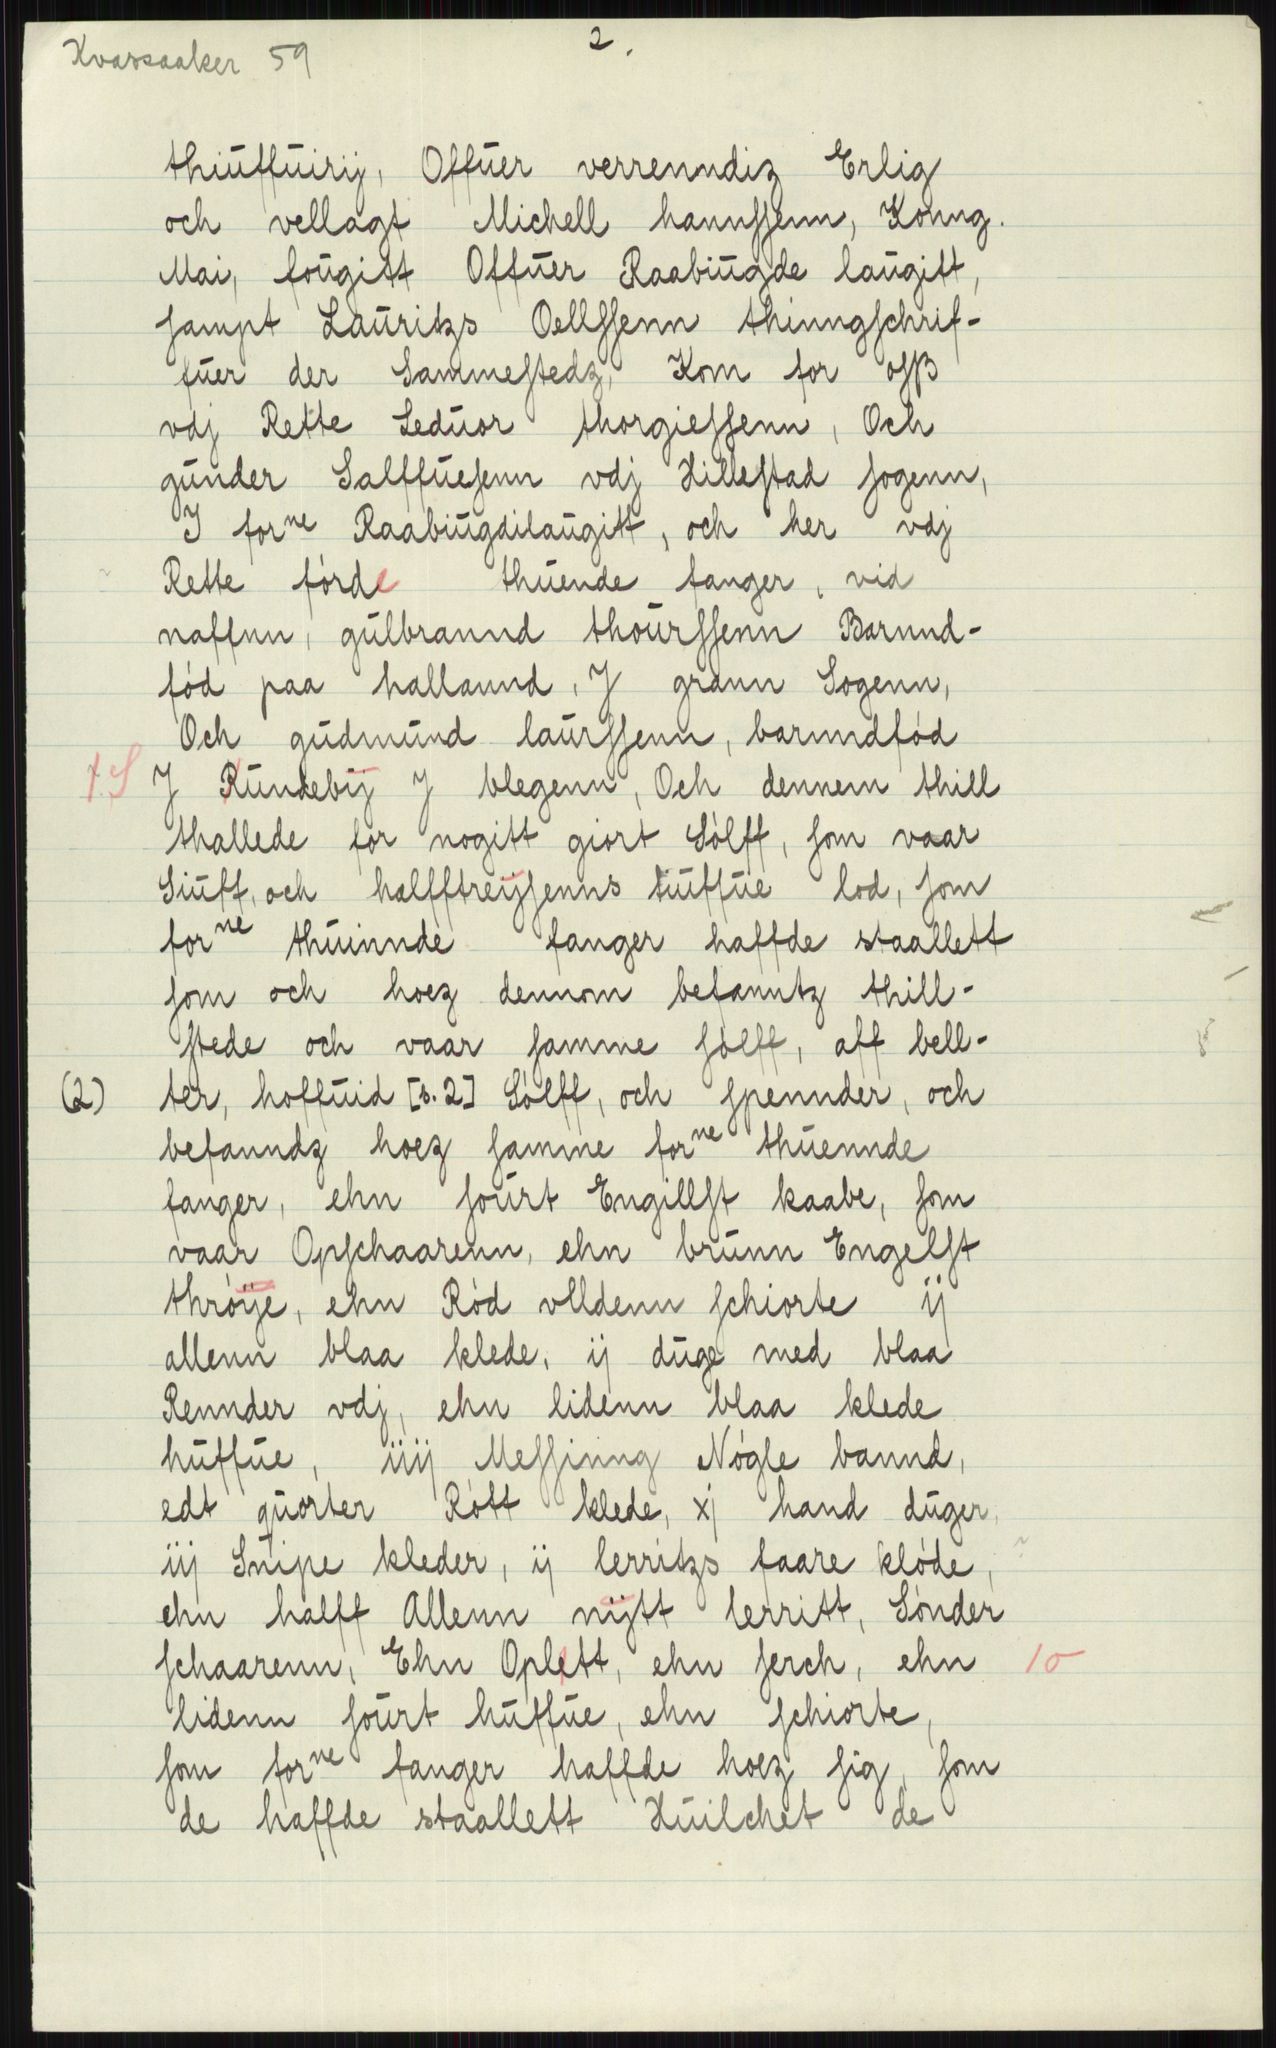 Kvarsaaker 59
2.
thiuffuirij, Offuer verrenndiz Erlig
och vellagt Michell hannssenn, Konng.
Mai, fougitt Offuer Raabiugde laugitt,
sampt Lauritzs Oellssenn thinngschrif-
fuer der Sammestedz, Kom for osß
vdj Rette Leduor thorgiessenn, Och
gunder Salffuesenn vdj Hillestad sogenn,
I forne Raabiugdilaugitt, och her vdj
Rette förde thuende fanger, vid
naffnn, gulbrannd thourssenn Barnnd-
fód paa hallannd, J grann Sogenn,
Och gudmund laurssenn, barnndfód
+ S J Rundebij J blegenn, Och dennem thill
thallede for nogitt giort Sólff, som vaar
Siuff, och halfftreijsenns tuffue lod, som
forne thuinnde fanger haffde staallett
som och hoez dennom befanntz thill-
stede och vaar samme sólff, aff bell-
(2) ter, hoffuid [s. 2] Sólff, och spennder, och
befanndz hoez samme forne thuennde
fanger, ehn sourt Engillst kaabe, som
vaar Opschaarenn, ehn brunn Engelst
thróÿe, ehn Ród vlldenn schiorte ij
allenn blaa klede, ij duge med blaa
Rennder vdj, ehn lidenn blaa klede
huffue, iiij Messinng Nógle bannd,
edt quorter Rótt klede, xj hand duger,
iij Snipe kleder, ij lerritzs faare klóde,
ehn halff Allenn nijtt lerritt, Sónder
schaarenn, Ehn Oplett, ehn serch, ehn 10
lidenn sourt huffue, ehn schiorte,
som forne fanger haffde hoez sig, som
de haffde staallett Huilchet de